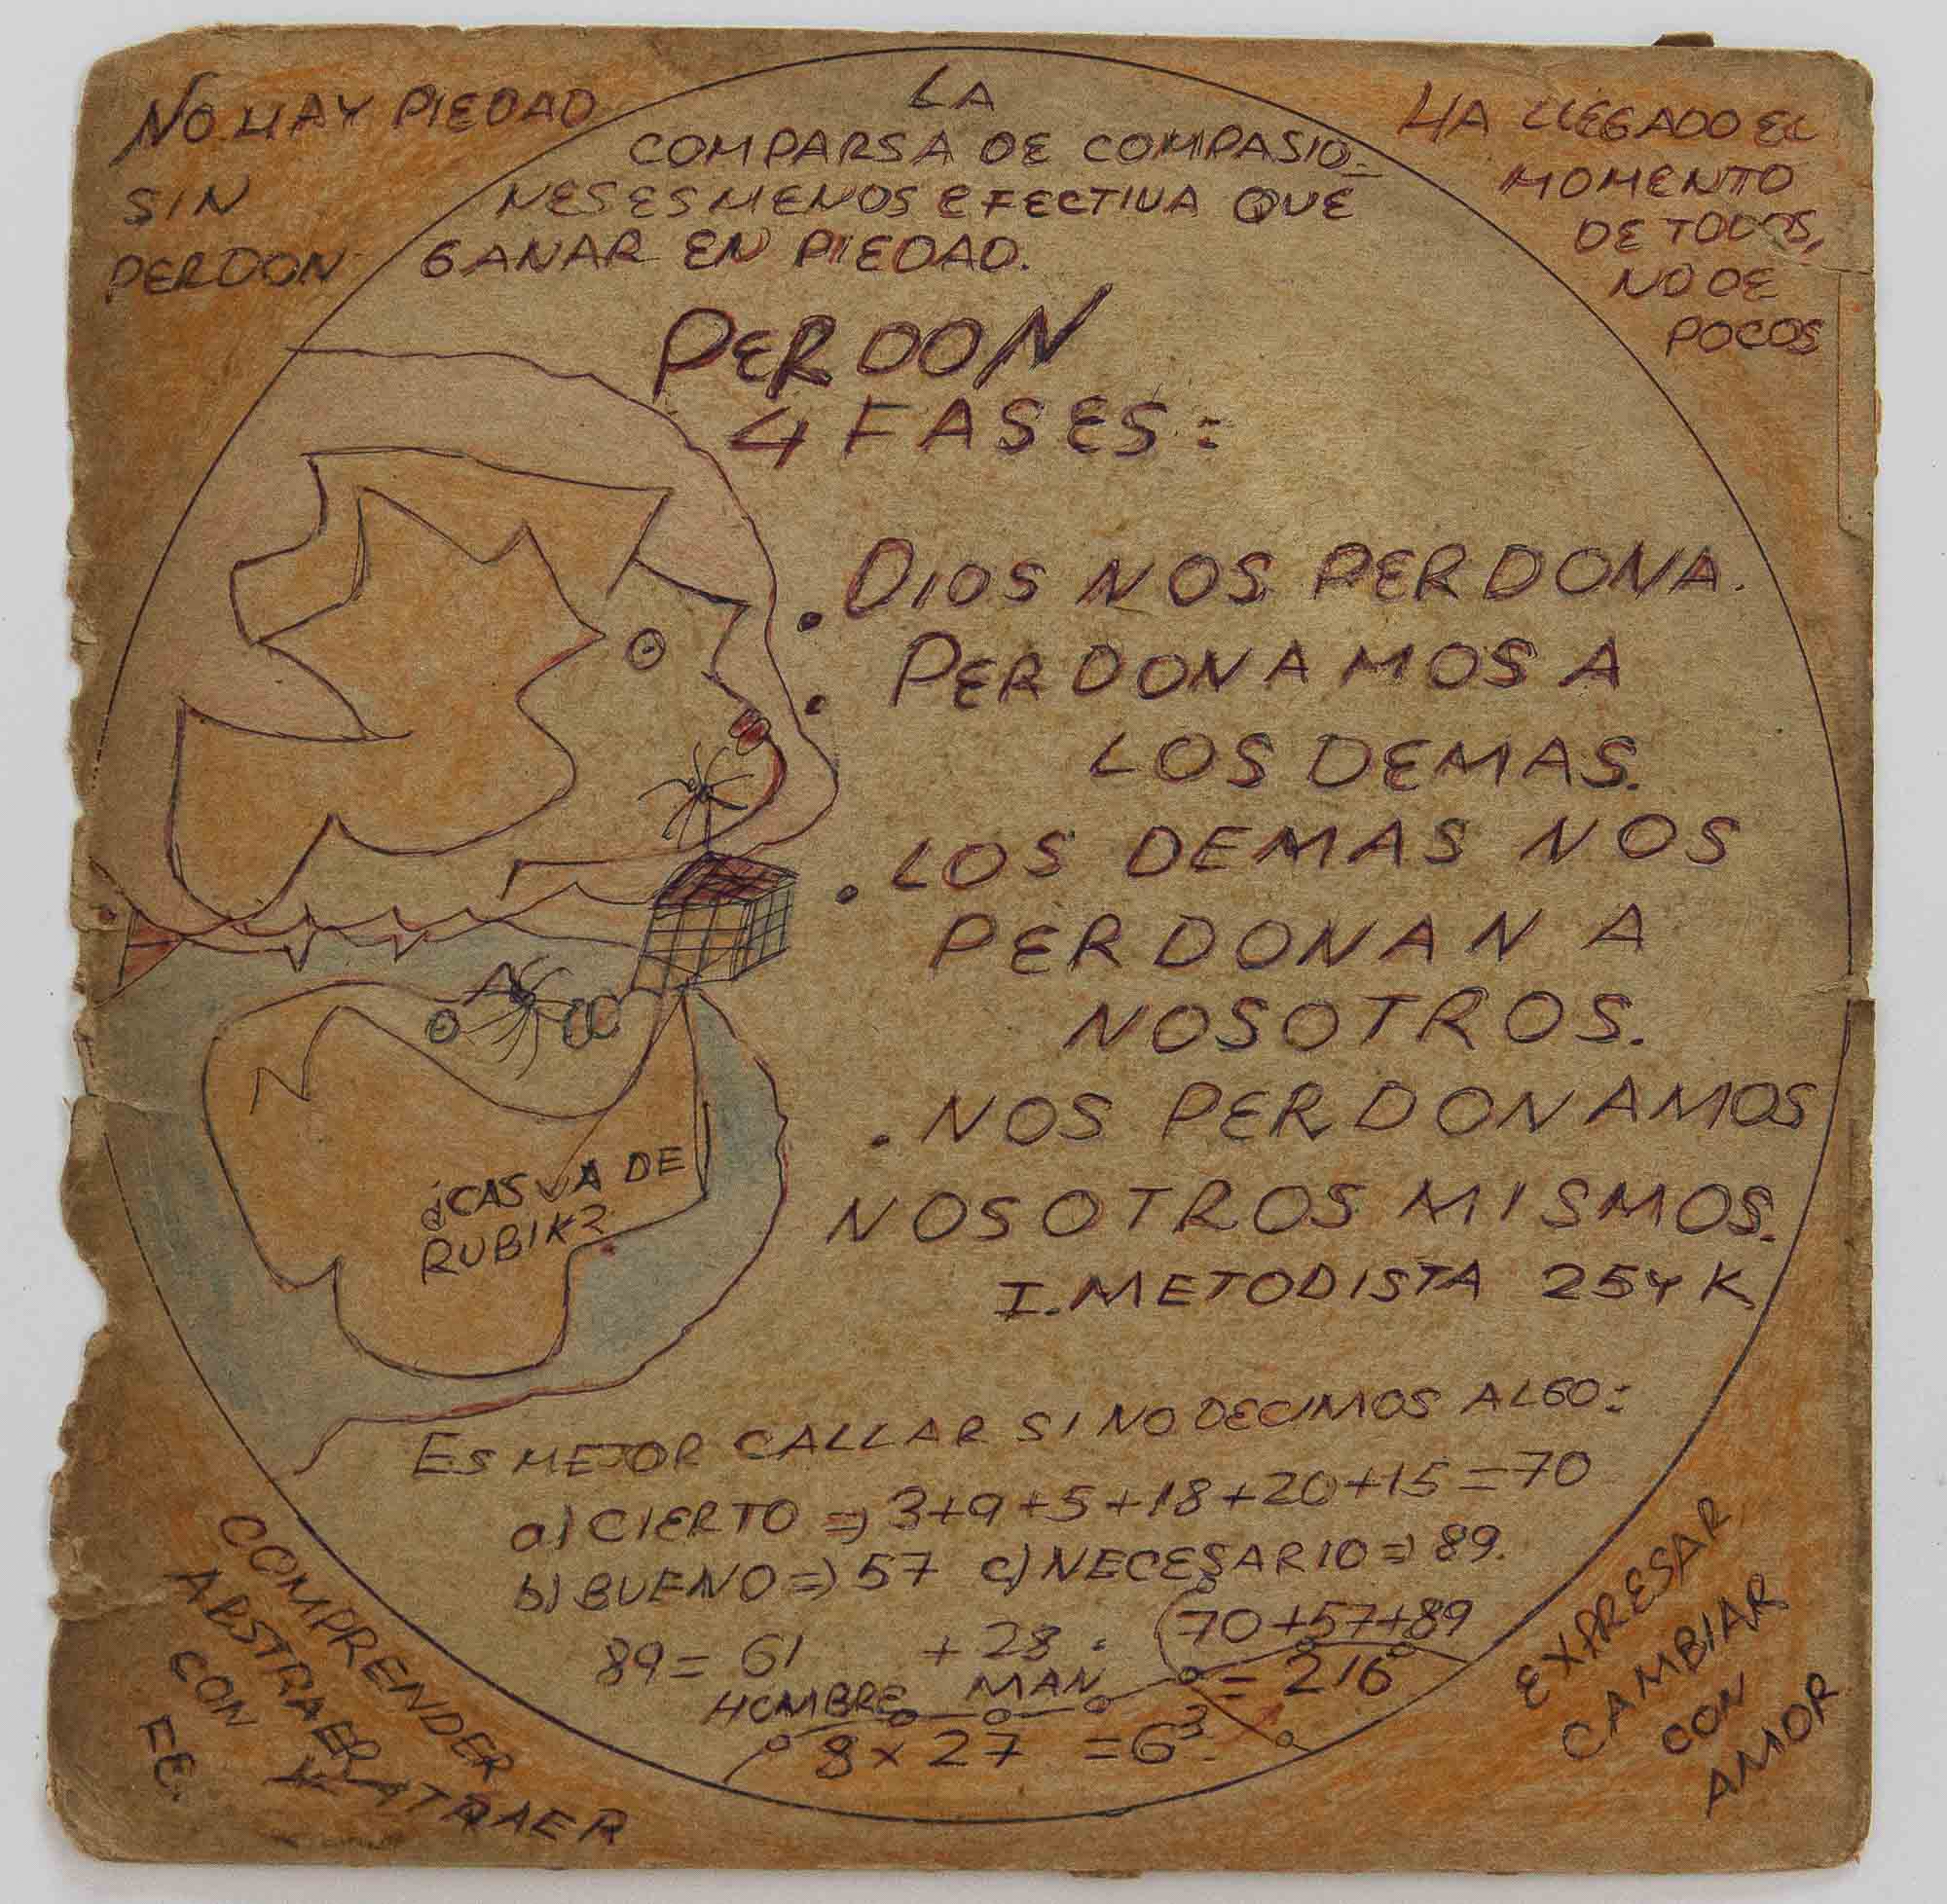 NO HAY PIEDAD
SIN
PERDON
LA
COMPARSA DE COMPASIO-
NES ES MENOS EFECTIVA QUE
GANAR EN PIEDAD.
HA LLEGADO EL
MOMENTO
DE TODOS,
NO DE
POCOS
PERDON
4 FASES:
. DIOS NOS PERDONA.
. PERDONAMOS A
LOS DEMAS.
. LOS DEMAS NOS
PERDONAN A
NOSOTROS.
. NOS PERDONAMOS
NOSOTROS MISMOS.
I. METODISTA 25 Y K
DE
RUBIK?
ES MEJOR CALLAR SI NO DECIMOS ALGO:
a) CIERTO => 3+9+5+18+20+15=70
b) BUENO => 57 c) NECESARIO => 89.
89 = 61 + 28 . (70+57+89
HOMBRE MAN = 216
8 x 27 = 6³.
COMPRENDER
ABSTRAER Y ATRAER
CON
FE.
EXPRESAR
CAMBIAR
CON
AMOR